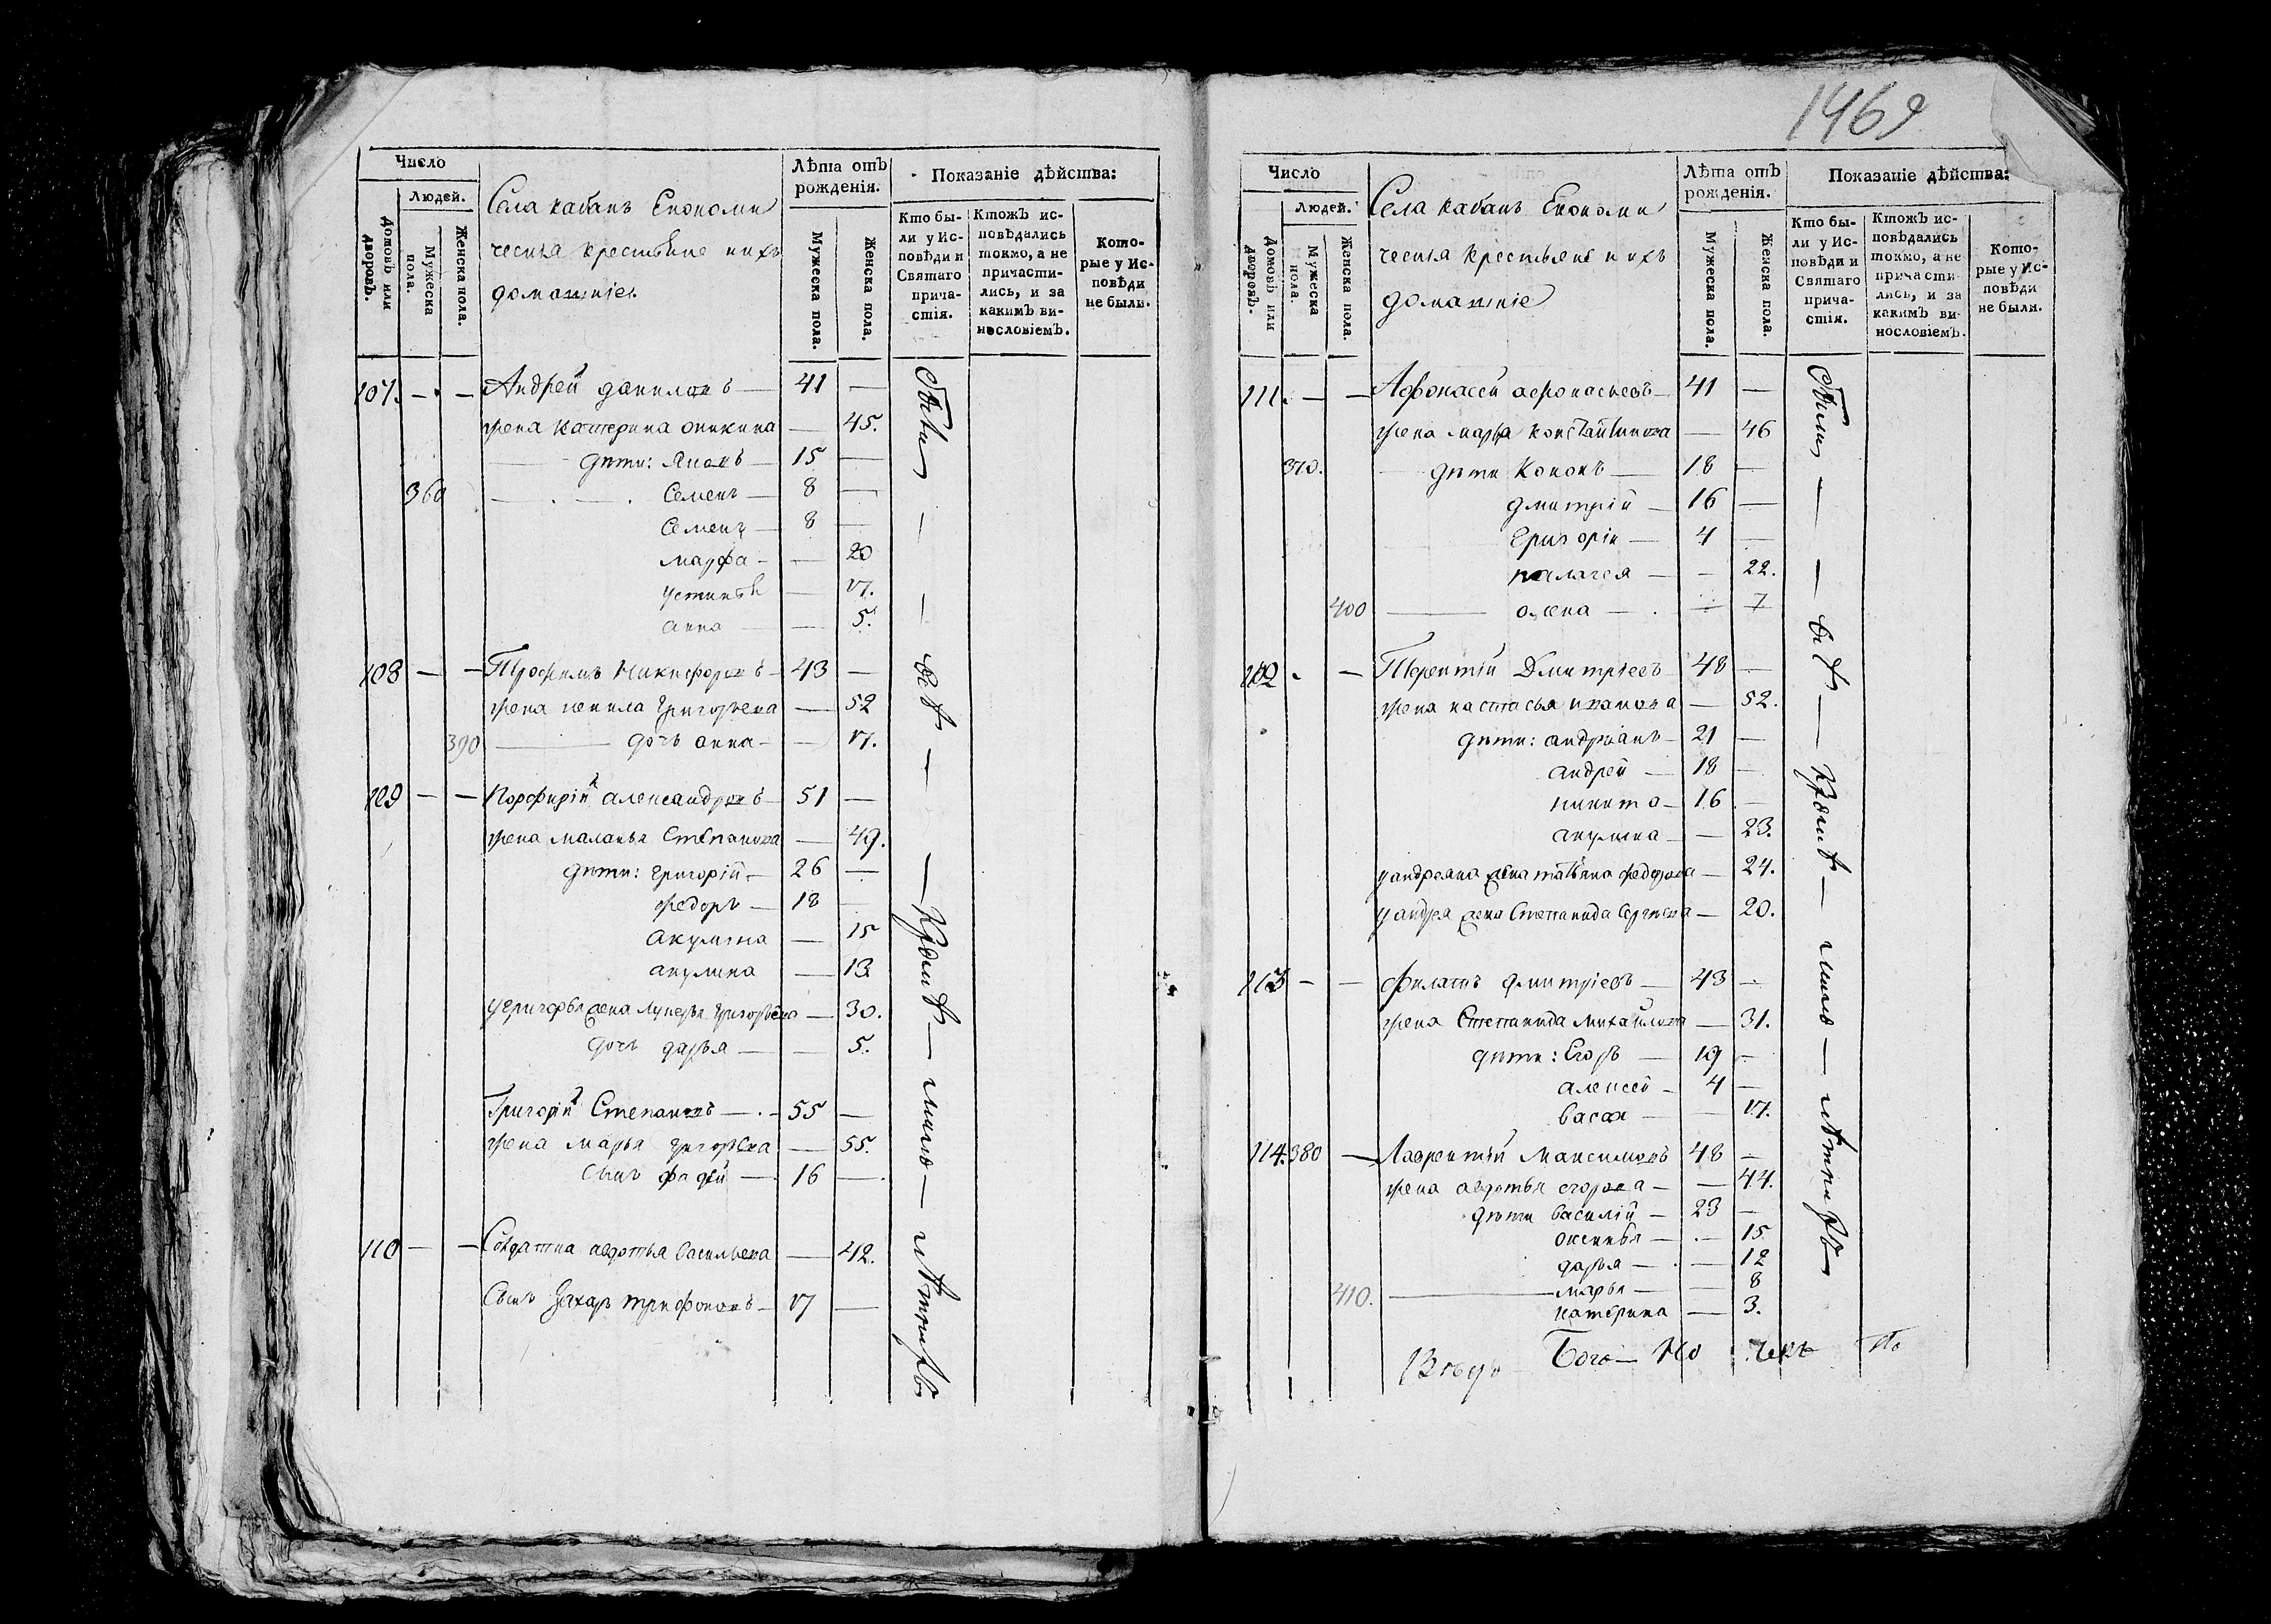 1469
Число
Людей.
Домовъ или дворовъ.
Мужеска пола.
Женска пола.
Села кабанъ Економи
ческия крестьяне и ихъ
домашнiе.
Лѣта отъ рожденія.
Мужеска пола.
Женска пола.
Показаніе дѣйства:
Кто бы-
ли у Ис-
повѣди и
Святаго
прича-
стія.
Ктожъ ис-
повѣдались
токмо, а не
причасти-
лись, и за
какимъ ви-
нословіемъ.
Кото-
рые у Ис-
повѣди
не были.
107. — — Андрей даниловъ — 41 —
жена катерина оникина — 45.
дѣти: — 15 —
360 Семенъ — 8 —
Семенъ — 8 —
марфа — — 20
устинья — 17.
анна — 5.
108 — — Трофимъ Никифоровъ — 43 —
жена ненила григорьева — 52
390 — дочь анна — — 17.
109 — — Порфирій александровъ — 51 —
жена маланья Степанова — 49.
дѣти: григорій — 26 —
федоръ — 18 —
Акулина — 15
акулина — 13
у григорья жена лукерья григорьева — 30.
дочь дарья — — 5.
Григорій Степановъ — 55 —
жена марья григорьева — 55.
сынъ фадѣй — 16 —
110 — — Солдатка авдотья васильева — 42.
Сынъ Захаръ трифоновъ — 17 —
были — — всѣ — — Кромѣ — мало — лѣтныхъ
Число
Людей.
Домовъ или дворовъ.
Мужеска пола.
Женска пола.
Села кабанъ Економи
ческия крестьяне и ихъ
домашніе
Лѣта отъ рожденія.
Мужеска пола.
Женска пола.
Показаніе дѣйства:
Кто бы-
ли у Ис-
повѣди и
Святаго
прича-
стія.
Ктожъ ис-
повѣдались
токмо, а не
причасти-
лись, и за
какимъ ви-
нословіемъ.
Кото-
рые у Ис-
повѣди
не были.
111. — — Афонасей афонасьевъ — 41 —
жена марья константинова — 46
370. дѣти Кононъ — 18 —
дмитрій — 16 —
Григорій — 4 —
палагея — — 22.
400 — олена — — 7
112 — Терентій Дмитріевъ — 48 —
жена настасья иванова — 52.
дѣти: андріанъ — 21 —
андрей — 18 —
никита — 16 —
акулина — — 23.
у андреяна жена татьяна федорова — 24.
у андрея жена Степанида Сергѣева — 20.
113 — — филатъ дмитріевъ — 43 —
жена Степанида михайлова — 31.
дѣти: Егоръ — 19 —
алексей — 4 —
васса — — 17.
114. 380 — Лаврентій Максимовъ 48 —
жена авдотья егорова — — 44.
дѣти василій — 23 —
оксинья — — 15
дарья — — 12
410. — марья — — 8
катерина — 3.
были — — всѣ — Кромѣ — мало — лѣтныхъ